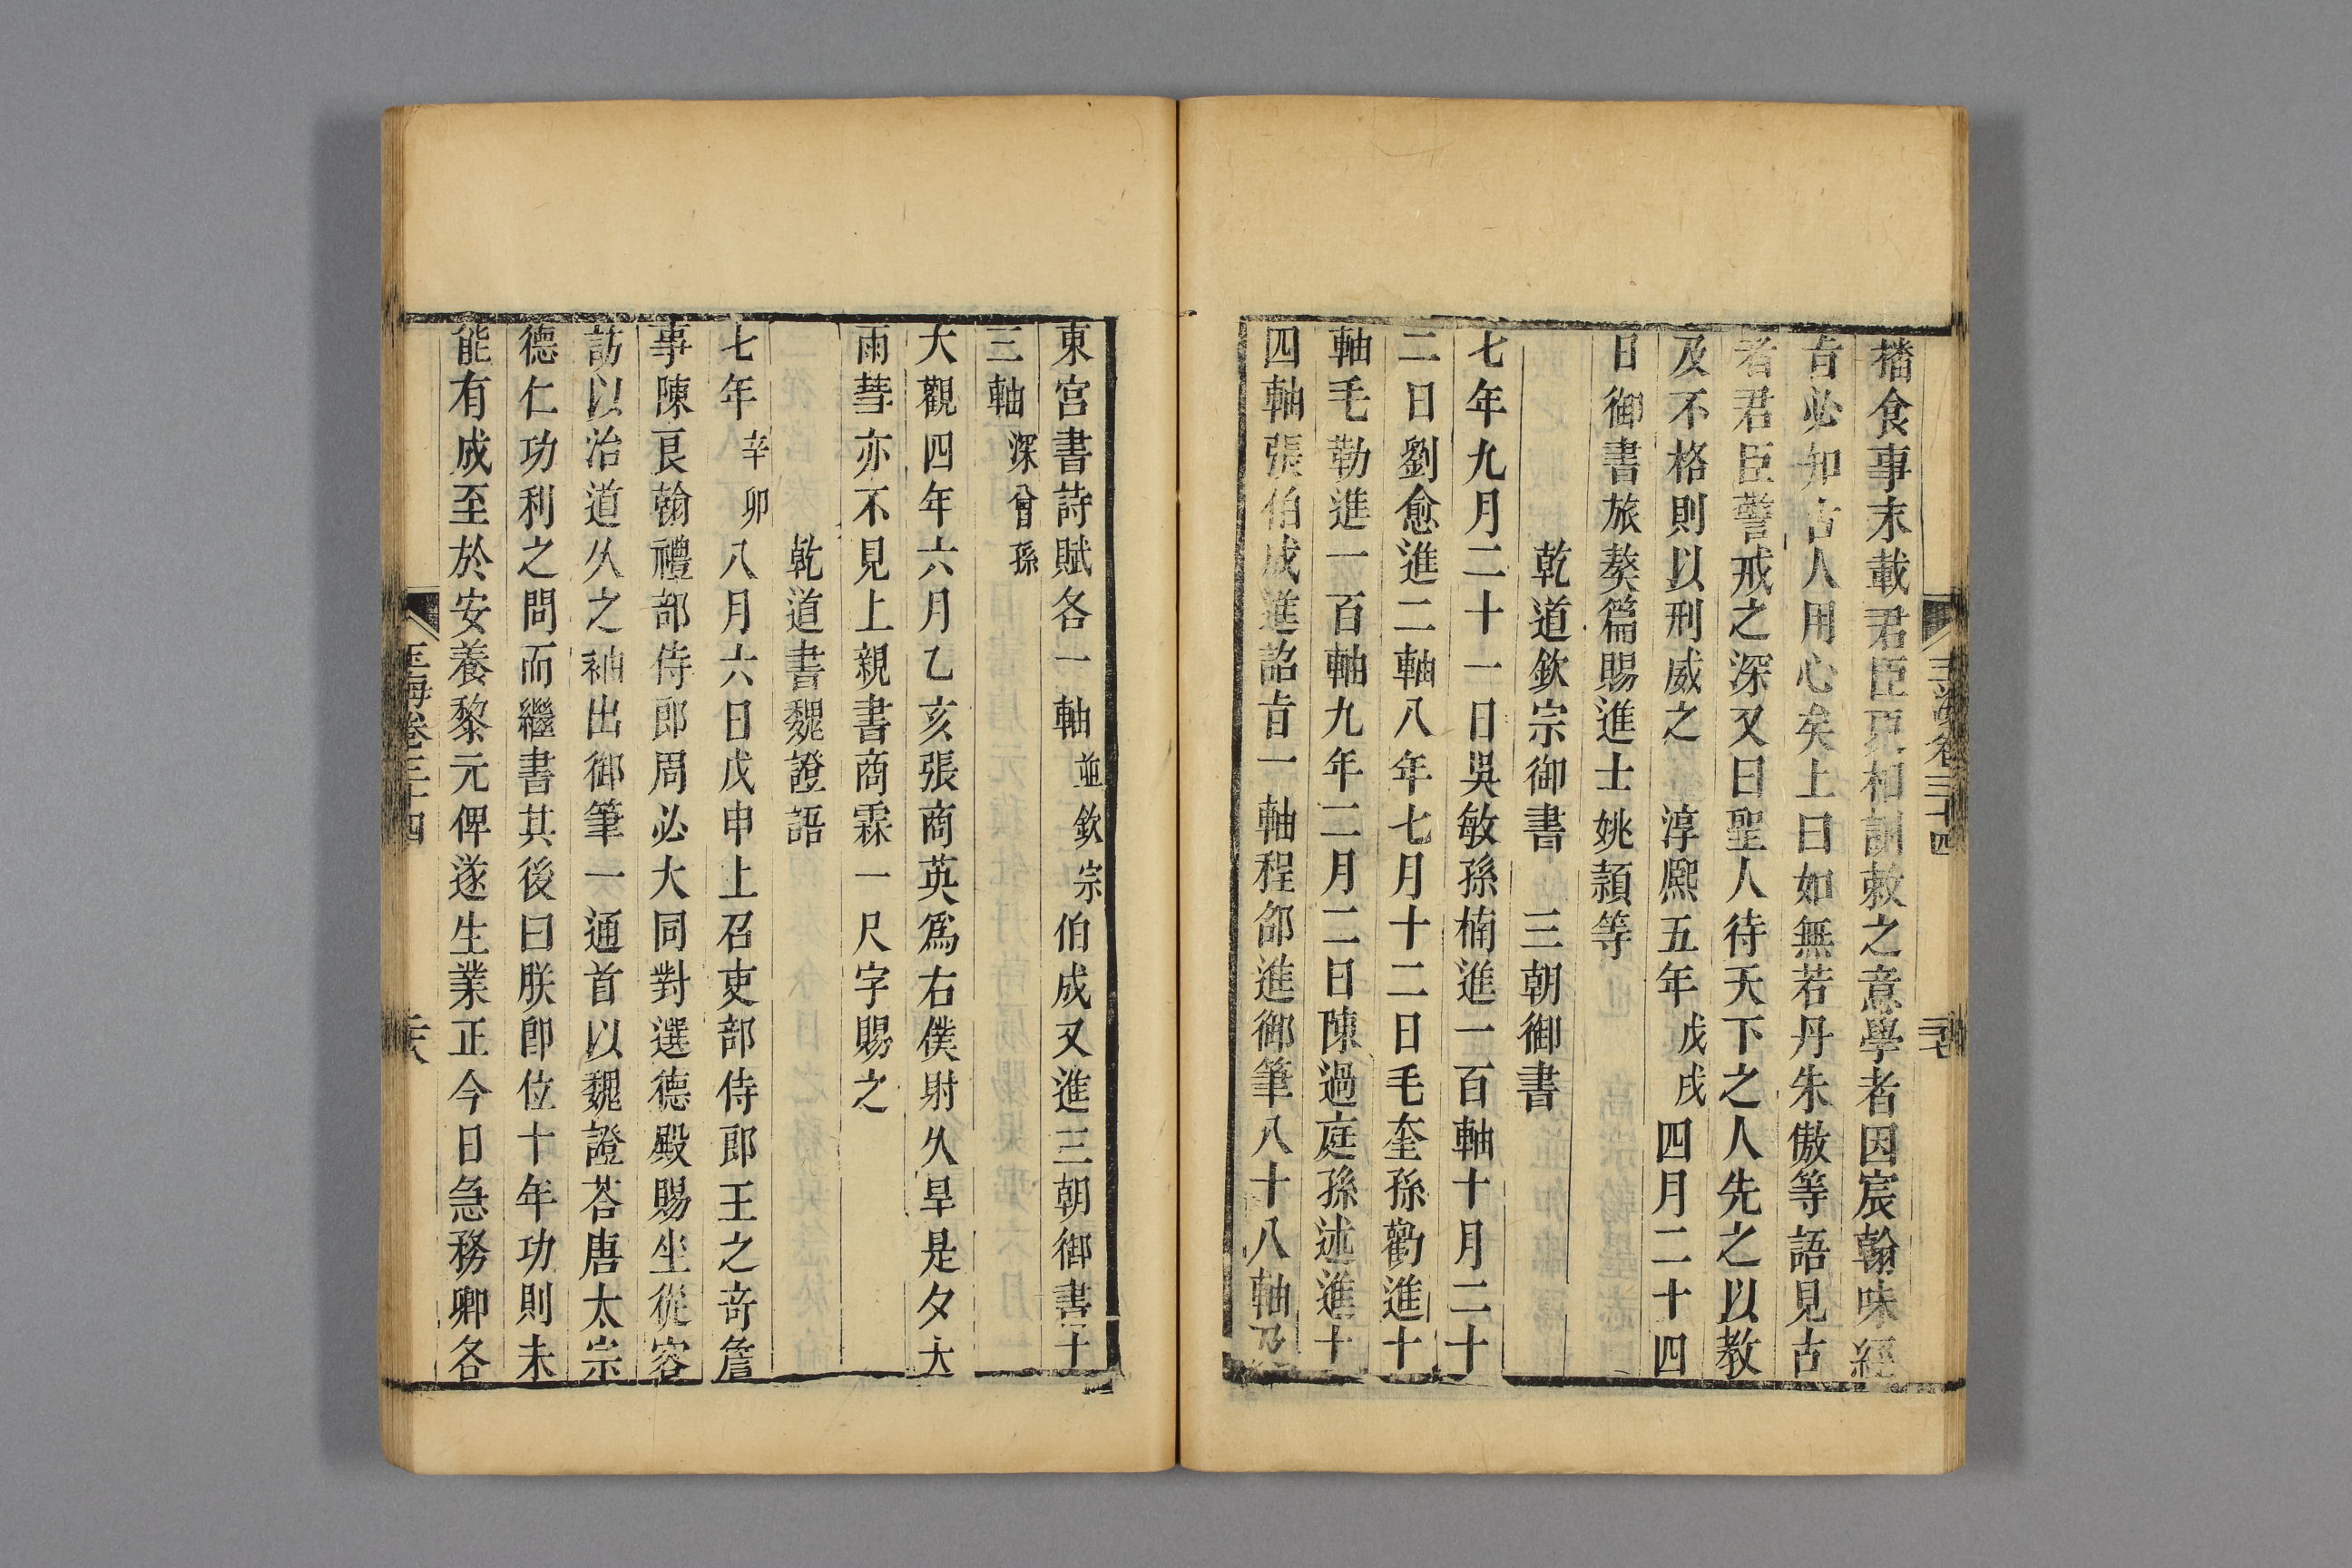 播食事末載君臣更相訓敕之意學者因宸翰味經
旨必知古人用心矣上曰如無若丹朱傲等語見古
者君臣警戒之深又曰聖人待天下之人先之以教
及不格則以刑威之 淳熈五年戊戌四月二十四
日御書旅獒篇賜進士姚頴等
乾道欽宗御書 三朝御書
七年九月二十一日吳敏孫楠進一百軸十月二十
二日劉愈進二軸八年七月十二日毛奎孫勸進十
軸毛勒進一百軸九年二月二日陳過庭孫述進十
四軸張伯成進詔旨一軸程邵進御筆八十八軸乃
玉海卷三十四
東宮書詩賦各一軸並欽宗伯成又進三朝御書十
三軸深曾孫
大觀四年六月乙亥張商英爲右僕射久旱是夕大
雨彗亦不見上親書商霖一尺字賜之
乾道書魏證語
七年辛卯八月六日戊申上召吏部侍郎王之奇詹
事陳良翰禮部侍郎周必大同對選德殿賜坐從容
訪以治道久之袖出御筆一通首以魏證荅唐太宗
德仁功利之問而繼書其後曰朕卽位十年功則未
能有成至於安養黎元俾遂生業正今日急務卿各
玉海卷三十四